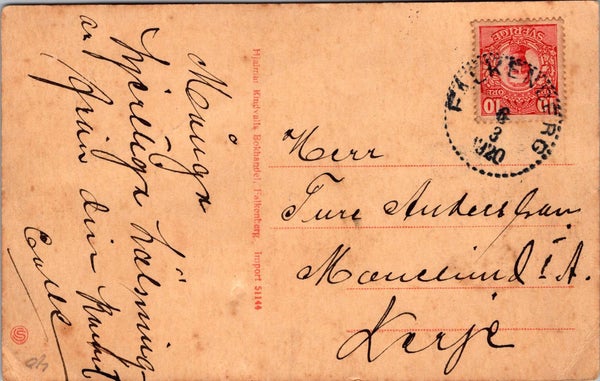 Många
hjertliga hälsning-
ar från din
Calle
Hjalmar Kingvalls Bokhandel, Falkenberg. Import 51144
SVERIGE
10 10
FALKENBERG
6
3
1920
Herr
Ture Andersson
I A.